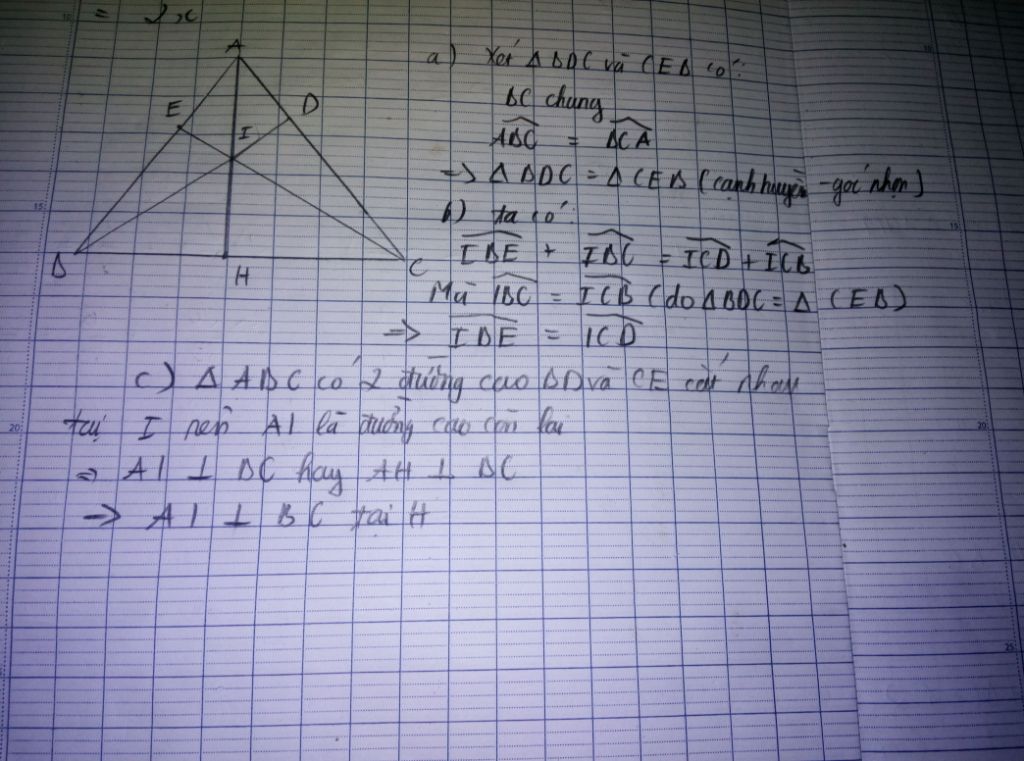 = 2x
A
E
D
I
B
H
C
a) Xét Δ BDC và CEB có:
BC chung
ABC = BCA
=> Δ BDC = Δ CEB (cạnh huyền - góc nhọn)
b) ta có:
IBE + IBC = ICD + ICB
Mà IBC = ICB (do ΔBDC = Δ CEB)
=> IBE = ICD
c) Δ ABC có 2 đường cao BD và CE cắt nhau
tại I nên AI là đường cao còn lại
=> AI ⊥ BC hay AH ⊥ BC
=> AI ⊥ BC tại H